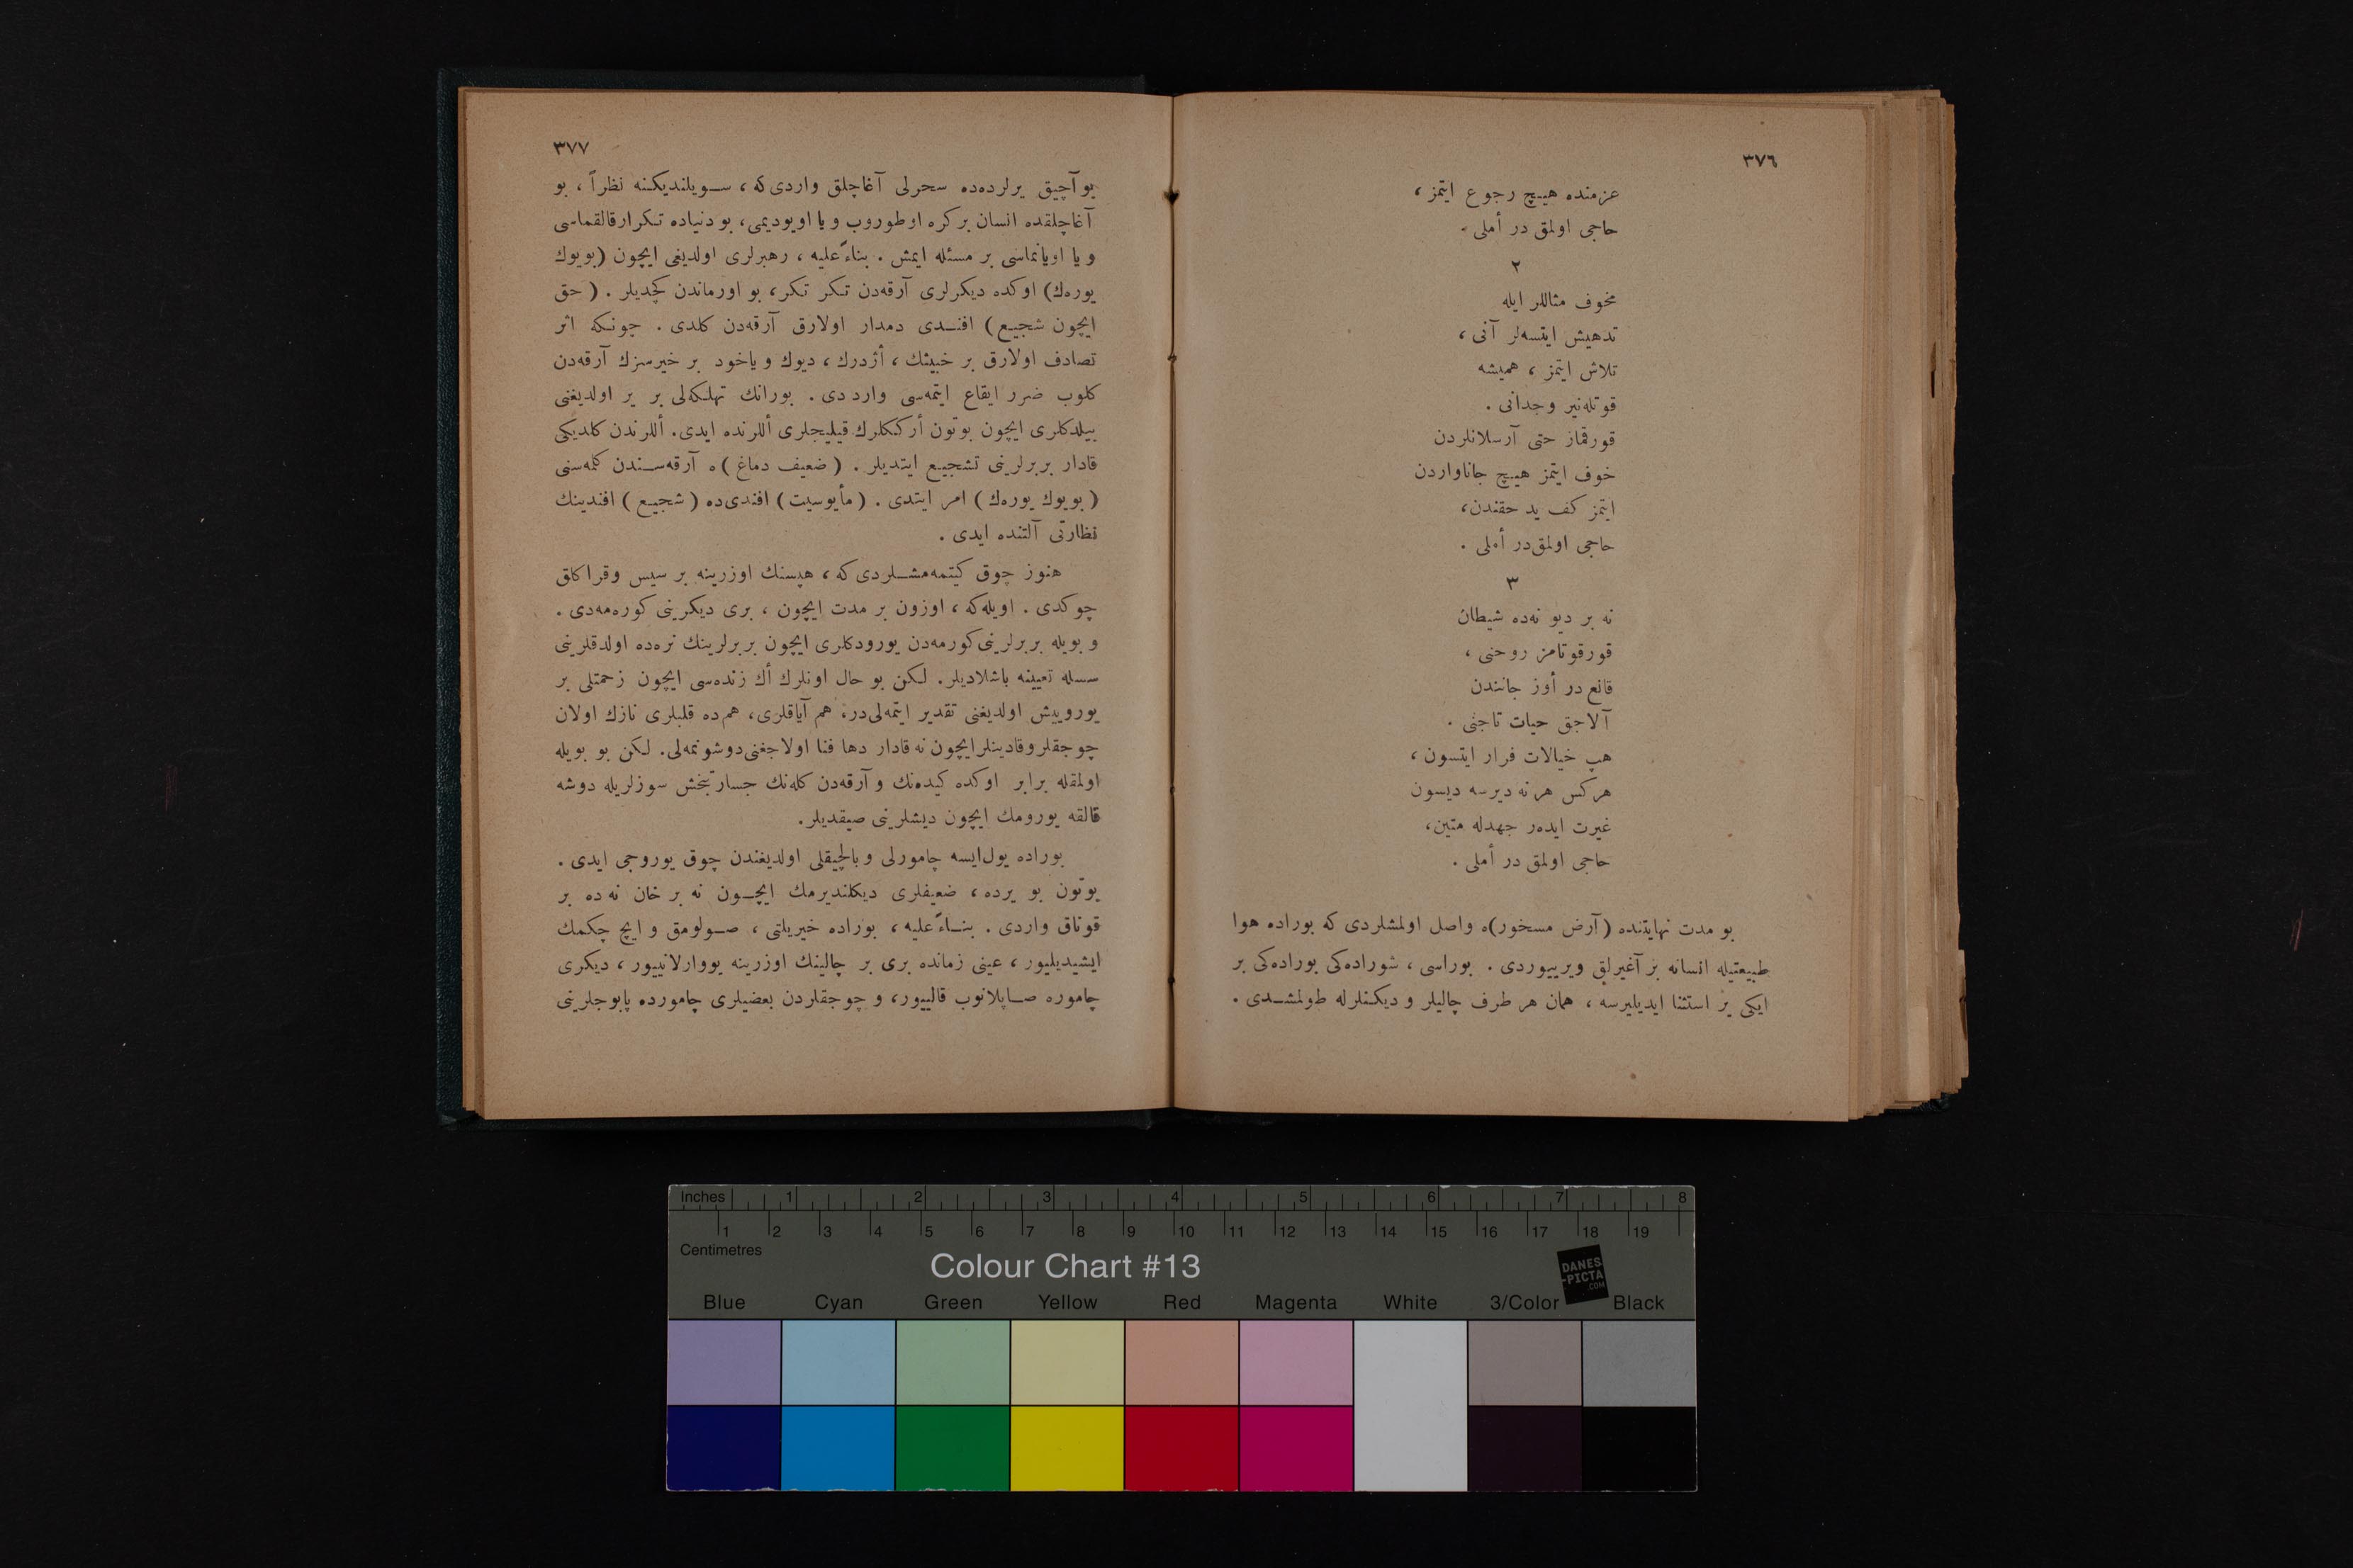 ٣٧٦
عزمنده هیچ رجوع ایتمز ،
حاجی اولمق در أملی .
٢
مخوف مثاللر ایله
تدهیش ایتسه‌لر آنی ،
تلاش ایتمز ، همیشه
قوتله‌نیر وجدانی .
قورقماز حتی آرسلانلردن
خوف ایتمز هیچ جاناواردن
ایتمز کف ید حقندن ،
حاجی اولمق‌در أملی .
٣
نه بر دیو نه‌ده شیطان
قورقوتامز روحنی ،
قانع در أوز جانندن
آلاجق حیات تاجنی .
هپ خیالات فرار ایتسون ،
هرکس هر نه دیرسه دیسون
غیرت ایده‌ر جهدله متین ،
حاجی اولمق در أملی .
بو مدت نهایتنده (آرض مسخور)ه واصل اولمشلردی که بوراده هوا
طبیعتیله انسانه بر آغیرلق ویرییوردی . بوراسی ، شوراده‌کی بوراده‌کی بر
ایکی یر استثنا ایدیلیرسه ، همان هر طرف چالیلر و دیکنلرله طولمشدی .
٣٧٧
بو آچیق یرلرده‌ده سحرلی آغاچلق واردی که ، سویلندیکنه نظراً ، بو
آغاچلقده انسان بر کره اوطوروب و یا اویودیمی ، بو دنیاده تکرار قالقماسی
و یا اویانماسی بر مسئله ایمش . بناءً علیه ، رهبرلری اولدیغی ایچون (بویوك
یوره‌ك) اوکده دیکرلری آرقه‌دن تکر تکر ، بو اورماندن کچدیلر . (حق
ایچون شجیع) افندی دمدار اولارق آرقه‌دن کلدی . چونکه اثر
تصادف اولارق بر خبیثك ، أژدرك ، دیوك و یاخود بر خیرسزك آرقه‌دن
کلوب ضرر ایقاع ایتمه‌سی وارد دی . بورانك تهلکه‌لی بر یر اولدیغنی
بیلدکلری ایچون بوتون أرککلرك قیلیجلری أللرنده ایدی . أللرندن کلدیکی
قادار بربرلرینی تشجیع ایتدیلر . (ضعیف دماغ)ه آرقه‌سندن کلمه‌سنی
(بویوك یوره‌ك) امر ایتدی . (مأیوسیت) افندی‌ده (شجیع) افندینك
نظارتی آلتنده ایدی .
هنوز چوق کیتمه‌مشلردی که ، هپسنك اوزرینه بر سیس وقراکلق
چوکدی . اویله که ، اوزون بر مدت ایچون ، بری دیکرینی کوره‌مه‌دی .
و بویله بربرلرینی کورمه‌دن یورودکلری ایچون بربرلرینك نره‌ده اولدقلرینی
سسله تعیینه باشلادیلر . لکن بو حال اونلرك أك زنده‌سی ایچون زحمتلی بر
یورویش اولدیغنی تقدیر ایتمه‌لی‌در ، هم آیاقلری ، هم‌ده قلبلری نازك اولان
چوجقلر وقادینلر ایچون نه قادار دها فنا اولاجغنی دوشونمه‌لی . لکن بو بویله
اولمقله برابر اوکده کیده‌نك و آرقه‌دن کله‌نك جسارتبخش سوزلریله دوشه
قالقه یورومك ایچون دیشلرینی صیقدیلر .
بوراده یول‌ایسه چامورلی و بالچیقلی اولدیغندن چوق یوروجی ایدی .
بوتون بو یرده ، ضعیفلری دیکلندیرمك ایچون نه بر خان نه ده بر
قوناق واردی . بناءً علیه ، بوراده خیریلتی ، صولومق و ایچ چکمك
ایشیدیلیور ، عینی زمانده بری بر چالینك اوزرینه یووارلانییور ، دیکری
چاموره صاپلانوب قالییور ، و چوجقلردن بعضیلری چامورده پابوجلرینی
Inches 1 2 3 4 5 6 7 8
1 2 3 4 5 6 7 8 9 10 11 12 13 14 15 16 17 18 19
Centimetres
Colour Chart #13
DANES
-PICTA
.COM
Blue Cyan Green Yellow Red Magenta White 3/Color Black